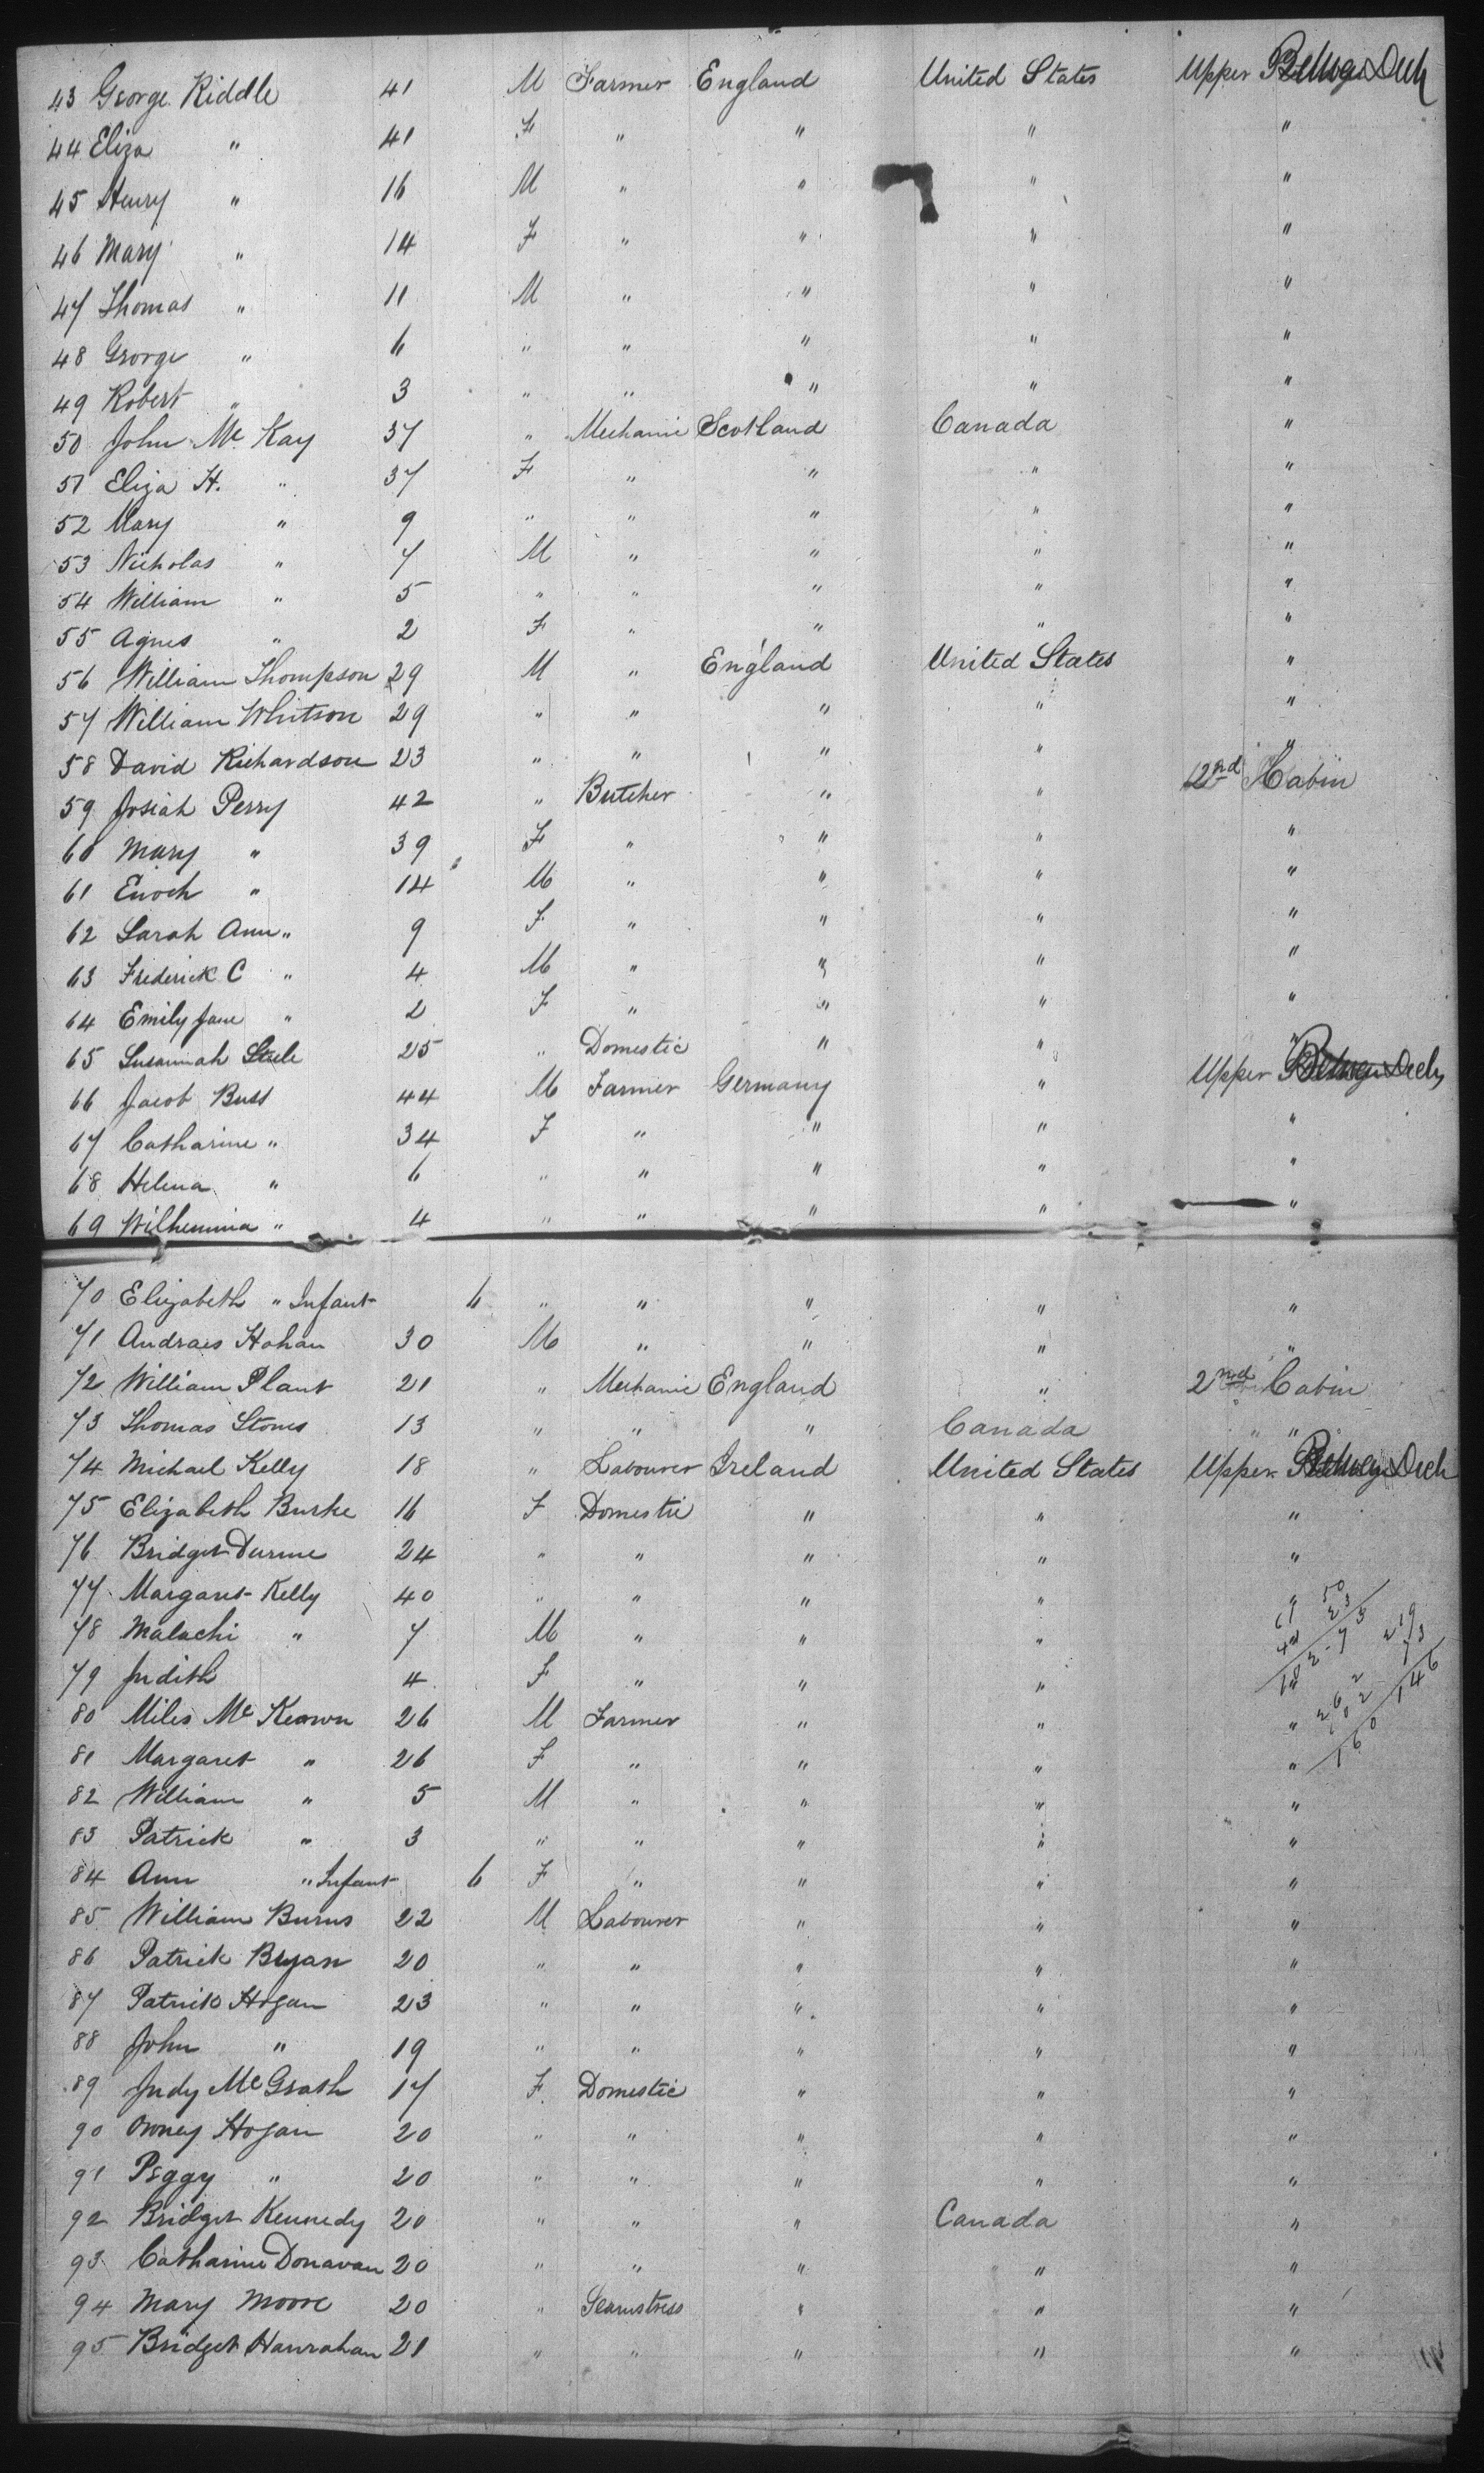 43 George Riddle 41 M Farmer England United States Upper Deck
44 Eliza " 41 F " " " "
45 Henry " 16 M " " " "
46 Mary " 14 F " " " "
47 Thomas " 11 M " " " "
48 George " 6 " " " " "
49 Robert " 3 " " " " "
50 John Mc Kay 37 " Mechanic Scotland Canada "
51 Eliza H. " 37 F " " " "
52 Mary " 9 " " " " "
53 Nicholas " 7 M " " " "
54 William " 5 " " " " "
55 Agnes " 2 F " " " "
56 William Thompson 29 M " England United States "
57 William Whitson 29 " " " " "
58 David Richardson 23 " " " " "
59 Josiah Perry 42 " Butcher " " 2nd Cabin
60 Mary " 39 F " " " "
61 Enoch " 14 M " " " "
62 Sarah Ann " 9 F " " " "
63 Frederick C " 4 M " " " "
64 Emily Jane " 2 F " " " "
65 Susannah Steele 25 " Domestic " "
66 Jacob Buss 44 M Farmer Germany " Upper Deck
67 Catharine " 34 F " " " "
68 Helena " 6 " " " " "
69 Wilhemina " 4 " " " " "
70 Elizabeth " Infant 6 " " " " "
71 Andraes Hohan 30 M " " " "
72 William Plant 21 " Mechanic England " 2nd Cabin
73 Thomas Stones 13 " " " Canada " "
74 Michael Kelly 18 " Labourer Ireland United States Upper Deck
75 Elizabeth Burke 16 F Domestic " " "
76 Bridget Durme 24 " " " " "
77 Margaret Kelly 40 " " " " "
78 Malachi " 7 M " " "
79 Judith 4 F " " "
80 Miles Mc Keown 26 M Farmer " " "
81 Margaret " 26 F " " " "
82 William " 5 M " " " "
83 Patrick " 3 " " " " "
84 Ann " Infant 6 F " " " "
85 William Burns 22 M Labourer " " "
86 Patrick Bryan 20 " " " " "
87 Patrick Hogan 23 " " " " "
88 John " 19 " " " " "
89 Judy Mc Grath 17 F Domestic " " "
90 Owney Hogan 20 " " " " "
91 Peggy " 20 " " " " "
92 Bridget Kennedy 20 " " " Canada "
93 Catharine Donavan 20 " " " " "
94 Mary Moore 20 " Seamstress " " "
95 Bridget Hanrahan 21 " " " " "